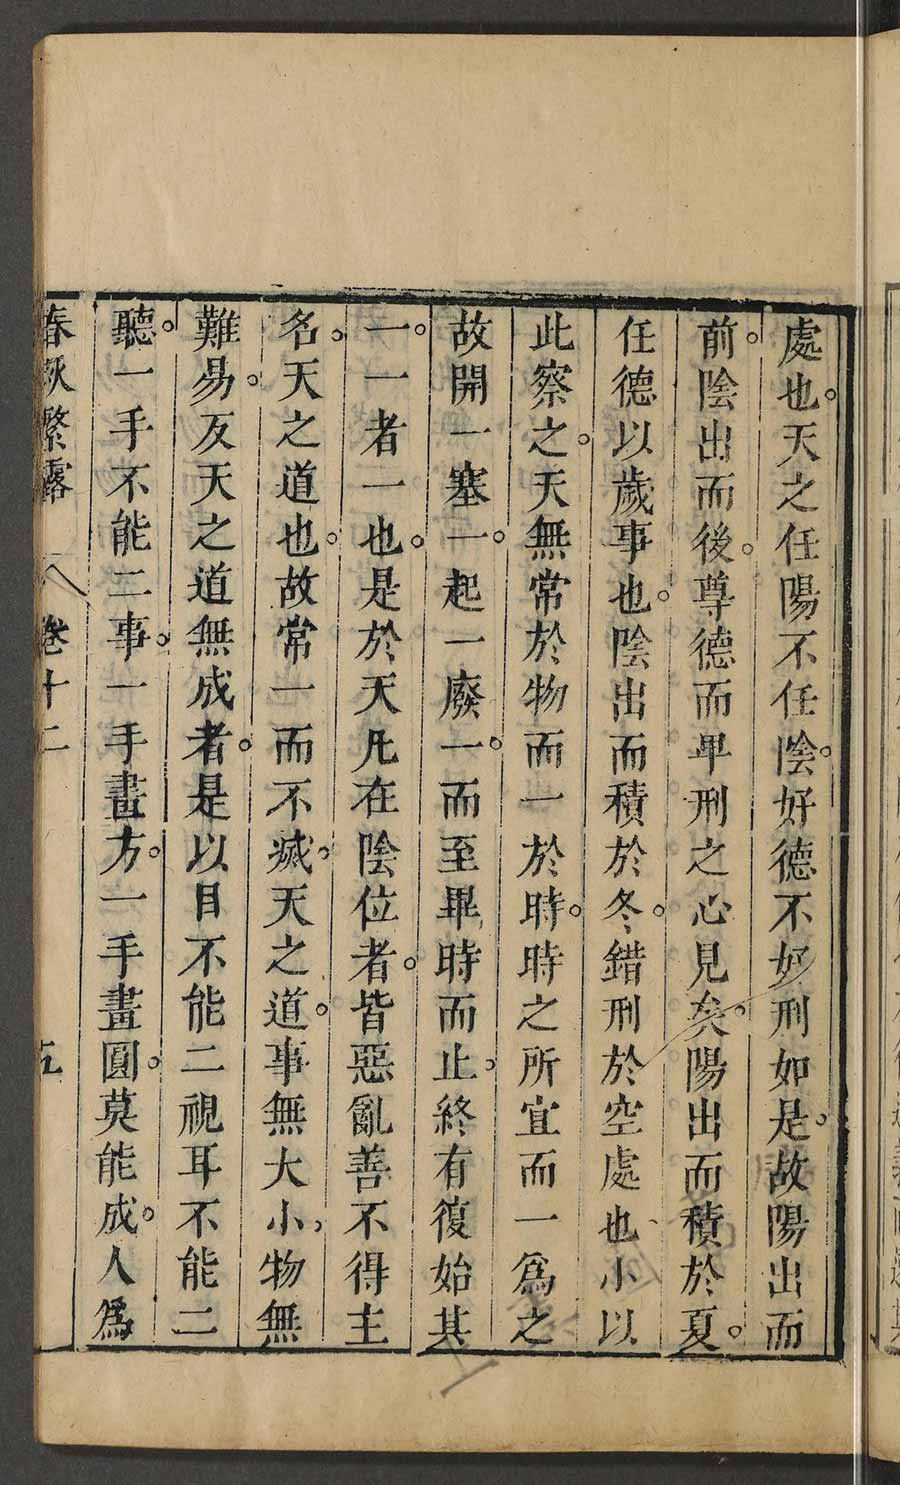 處也。天之任陽不任陰。好德不好刑如是。故陽出而
前。陰出而後。尊德而𤰞刑之心見矣。陽出而積於夏。
任德以歲事也。陰出而積於冬。錯刑於空處也、小以
此察之。天無常於物而一於時。時之所宜而一爲之
故開一塞一。起一廢一。而至畢時而止。終有復始其
一。一者一也。是於天凡在陰位者。皆惡亂善不得主
名。天之道也。故常一而不㓕。天之道。事無大小、物無
難易。反天之道無成者。是以目不能二視耳不能二
聽。一手不能二事。一手畫方。一手畫圓。莫能成。人爲
春秋繁露 卷十二 五